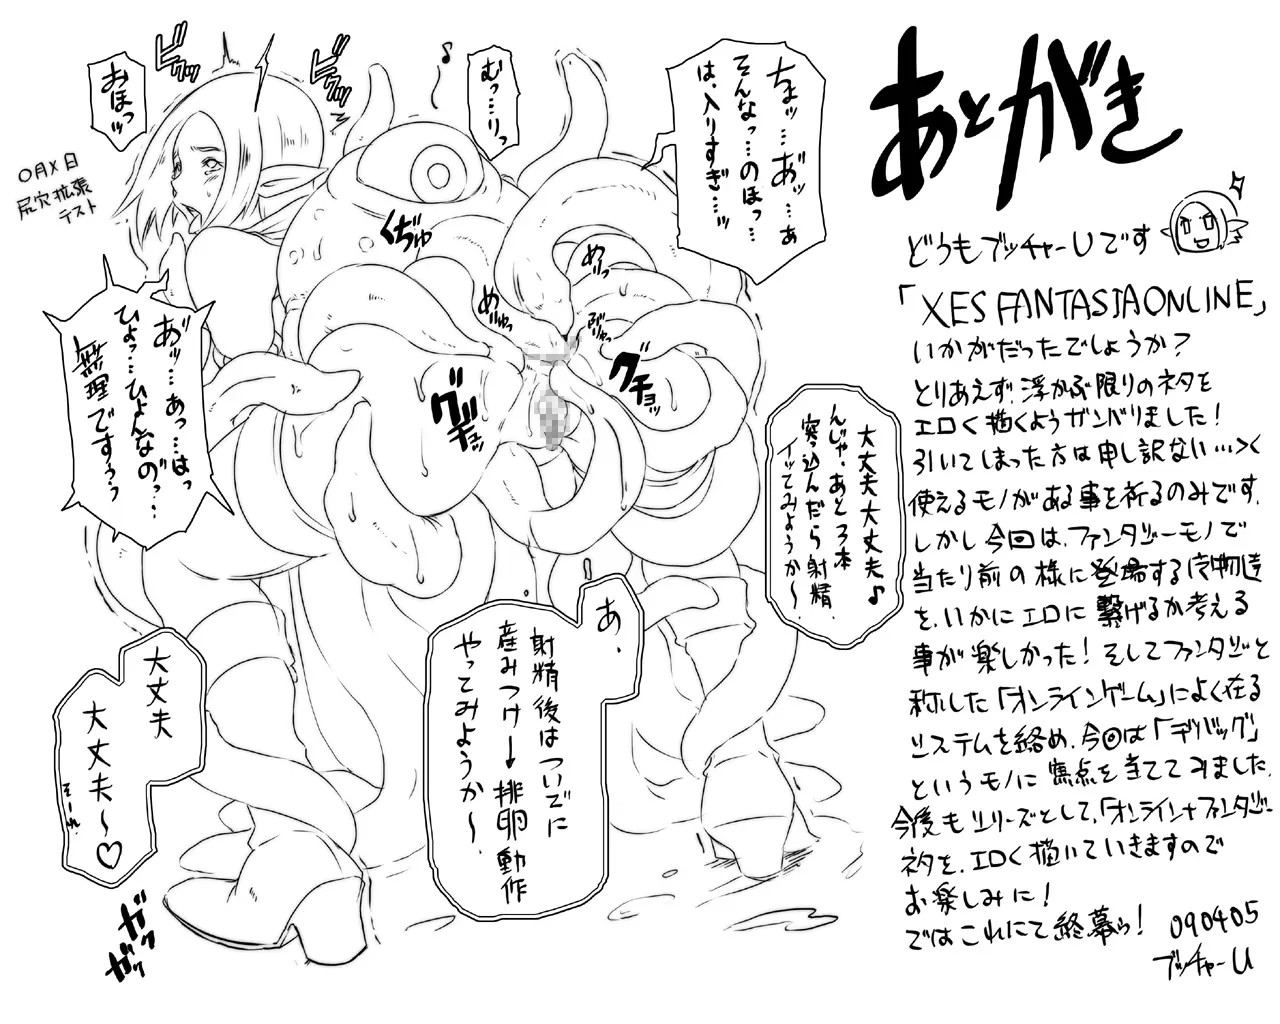 あとがき
どうもブッチャーUです
「XES FANTASIA ONLINE」
いかがだったでしょうか?
とりあえず浮かぶ限りのネタを
エロく描くようガンバりました!
引いてしまった方は申し訳ない…><
使えるモノがある事を祈るのみです。
しかし今回は、ファンタジーモノで
当たり前の様に登場する
を、いかにエロに繋げるか考える
事が楽しかった!そしてファンタジーと
称した「オンラインゲーム」によく在る
システムを絡め、今回は「デバッグ」
というモノに焦点を当ててみました。
今後もシリーズとして、「オンライン+ファンタジー
ネタを、エロく描いていきますので
お楽しみに!
ではこれにて終幕ゥ!
090405
ブッチャーU
ちョッ…あ゛ッ…あ
そんなっ…のほっ…
は、入りすぎ…ッ
むっ…りっ
おほッッ
ビクッ
ビクッ
♪
〇月×日
尻穴拡張
テスト
あ゛ッ…あっ…はっ
ひょっ…ひょんなの?…
無理ですぅぅ
ぐぢゅ
めりっ
めゅっ
ぶゅっ
グヂュッ
グチョッ
大丈夫大丈夫♪
んじゃ、あと3本
突っ込んだら射精
イッてみようか~
あ、
射精後はついでに
産みつけ→排卵動作
やってみようか~。
大丈夫
大丈夫~♡
そーれ
ガク
ガクッ